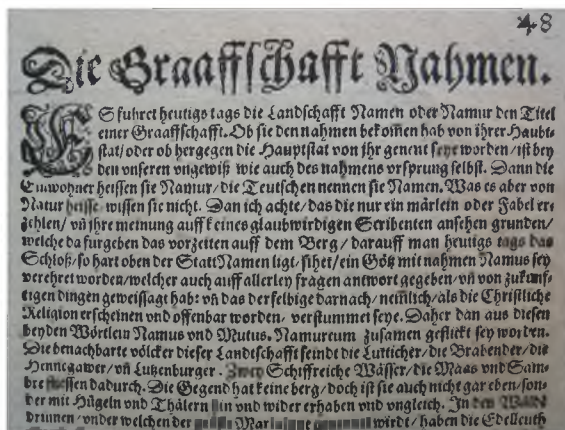 48
Die Graaffschafft Nahmen.
ES fuhret heutigs tags die Landschafft Namen oder Namur den Titel
einer Graaffschafft. Ob sie den nahmen bekom̃en hab von ihrer Haubt-
stat/ oder ob hergegen die Hauptstat von jhr genent seye worden/ ist bey
den vnseren vngewiß wie auch des nahmens vrsprung selbst. Dann die
Einwohner heissen sie Namur/ die Teutschen nennen sie Namen. Was es aber von
Natur heisse wissen sie nicht. Dan ich achte/ das die nur ein märlein oder Fabel er-
zehlen/ vñ ihre meinung auff keines glaubwirdigen Scribenten ansehen grunden/
welche da furgeben das vorzeiten auff dem Berg/ darauff man heutigs tags das
Schloß/ so hart oben der Statt Namen ligt/ sihet/ ein Götz mit nahmen Namus sey
verehret worden/ welcher auch auff allerley fragen antwort gegeben/ vñ von zukunf-
tigen dingen geweissagt hab: vñ das derselbige darnach/ nem̃lich/ als die Christliche
Religion erscheinen vnd offenbar worden/ verstummet seye. Daher dan aus diesen
beyden Wörtlein Namus vnd Mutus, Namureum zusamen geflickt sey worden.
Die benachbarte völcker dieser Landtschafft seindt die Lutticher/ die Brabender/ die
Hennegawer/ vñ Lutzenburger. Zwey Schiffreiche Wässer/ die Maas vnd Sam-
bre fliessen dadurch. Die Gegend hat keine berg/ doch ist sie auch nicht gar eben/ son-
der mit Hügeln vnd Thälern hin vnd wider erhaben vnd vngleich. In den
drinnen/ vnder welchen der wirdt/ haben die Edelleuth